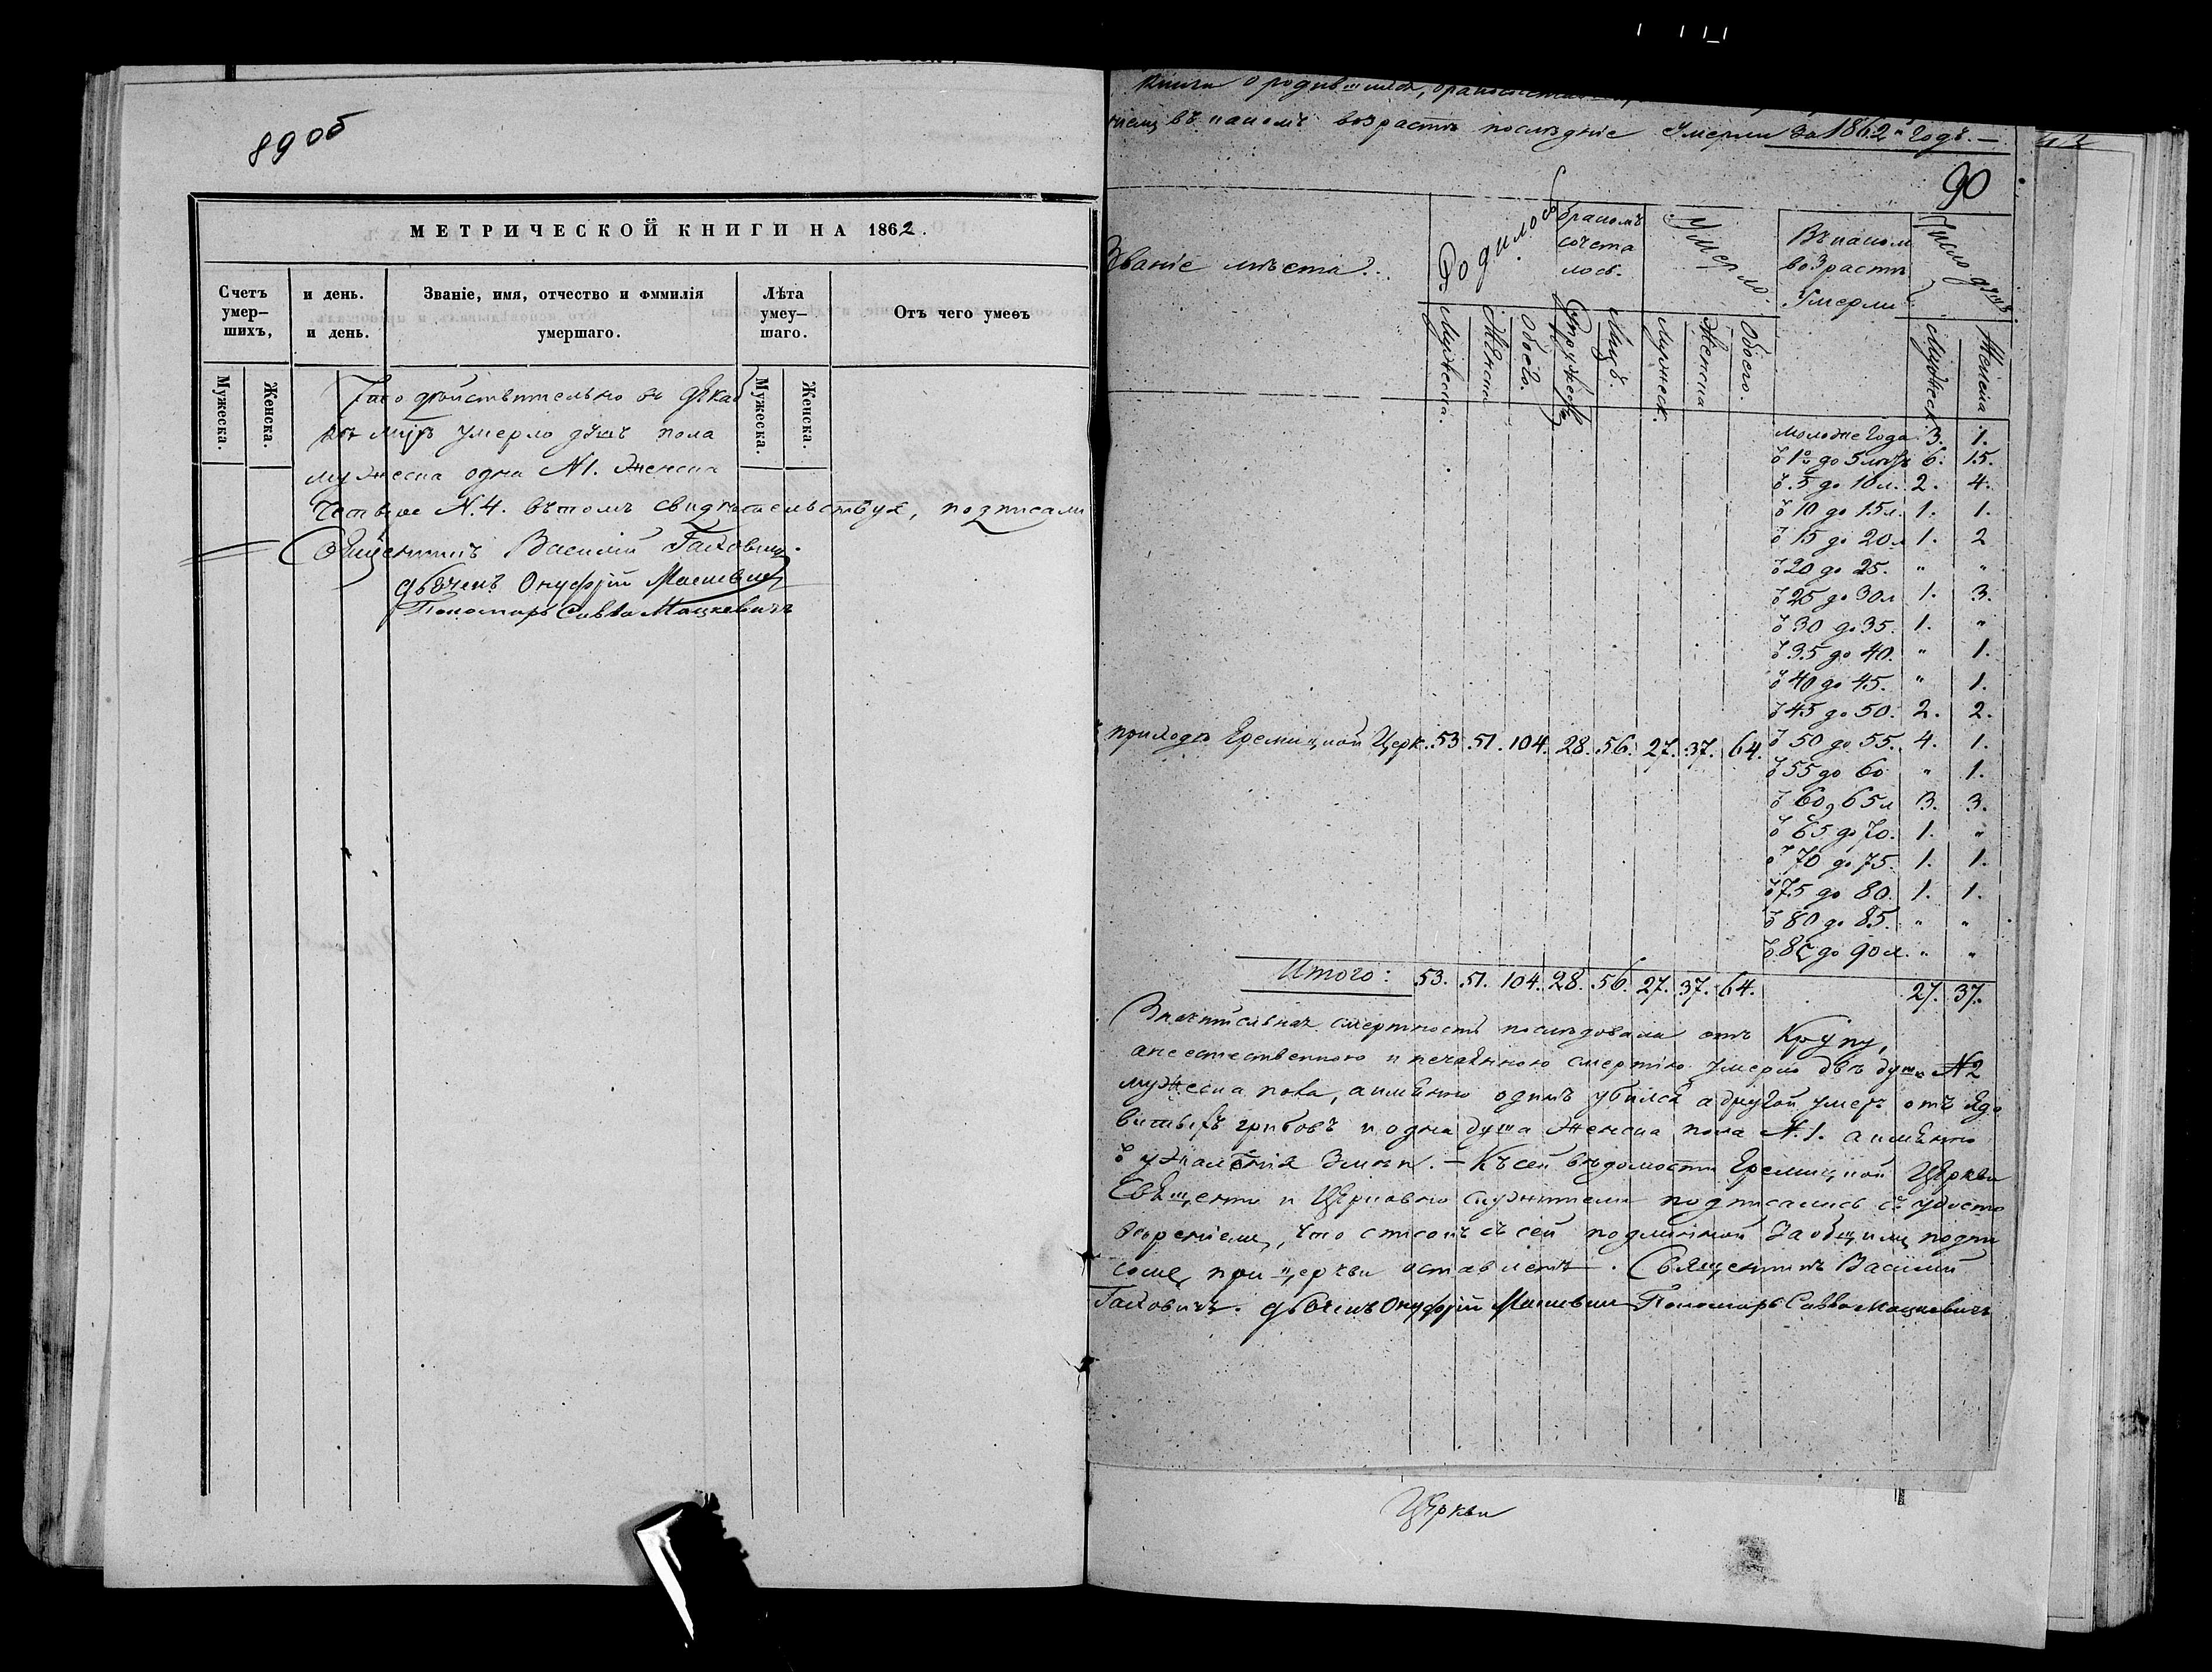 89 об
МЕТРИЧЕСКОЙ КНИГИ НА 1862.
Счетъ умер- шихъ,
и день. и день.
Званіе, имя, отчество и фммилія умершаго.
Лѣта умеу- шаго.
Отъ чего умеѳъ
Мужеска. Женска. Мужеска. Женска.
Что дѣйствительно въ Декаб
рѣ м‑цѣ умерло душъ пола
мужеска одна №1. Женска
четыре №.4. въ томъ свидѣтельствуя, подписали
Священникъ Василій
Дьячекъ Онуфрій
Пономарь Савва Мацкевичъ
книги о родившихся,
въ какомъ возрастѣ послѣдніе умерли за 1862й Годъ. —
90
Званіе мѣста.
Родилось
бракомъ сочета лось.
Умерло.
Въ каком возрастѣ умерли
Число душъ.
Мужеска. Женска Обоего. Супружеств Лицъ. Мужеск. Женска Обоего. Мужеск. Женска
моложе Года 3. 1.
ѿ 1го до 5 лѣтъ 6. 15.
ѿ 5 до 10 л. 2. 4.
ѿ 10 до 15 л. 1. 1.
ѿ 15 до 20 л 1. 2
ѿ 20 до 25. " "
ѿ 25 до 30 л 1. 3.
ѿ 30 до 35. 1. "
ѿ 35 до 40. " 1.
ѿ 40 до 45. " 1.
ѿ 45 до 50. 2. 2.
приходѣ Еремицкой Церк. 53 51. 104. 28. 56. 27. 37. 64. ѿ 50 до 55. 4. 1.
ѿ 55 до 60 " 1.
ѿ 60 д 65 л 3. 3.
ѿ 65 до 70. 1. "
ѿ 70 до 75. 1. 1.
ѿ 75 до 80. 1. 1.
ѿ 80 до 85. " "
ѿ 85 до 90 л. " "
Итого: 53. 51. 104. 28. 56. 27. 37. 64. 27. 37.
Значительная смертность послѣдовала отъ Крупу,
а неестественною и нечаянною смертію умерло двѣ душе №2
мужеска пола, а именно одинъ убился а другой умеръ отъ ядо
витыхъ грибовъ и одна душа женска пола №.1. а именно
ѿ ужаленія Змеи. — Къ сей вѣдомости Еремицкой Церкви
Священно и Церковно служители подписались съ удосто
вереніем, что списокъ съ сей подлинной за общимъ подпи
сомъ при церкви оставленъ. Священникъ Василій
Дьячекъ Онуфрій Пономарь Савва Мацкевичъ
Церкви